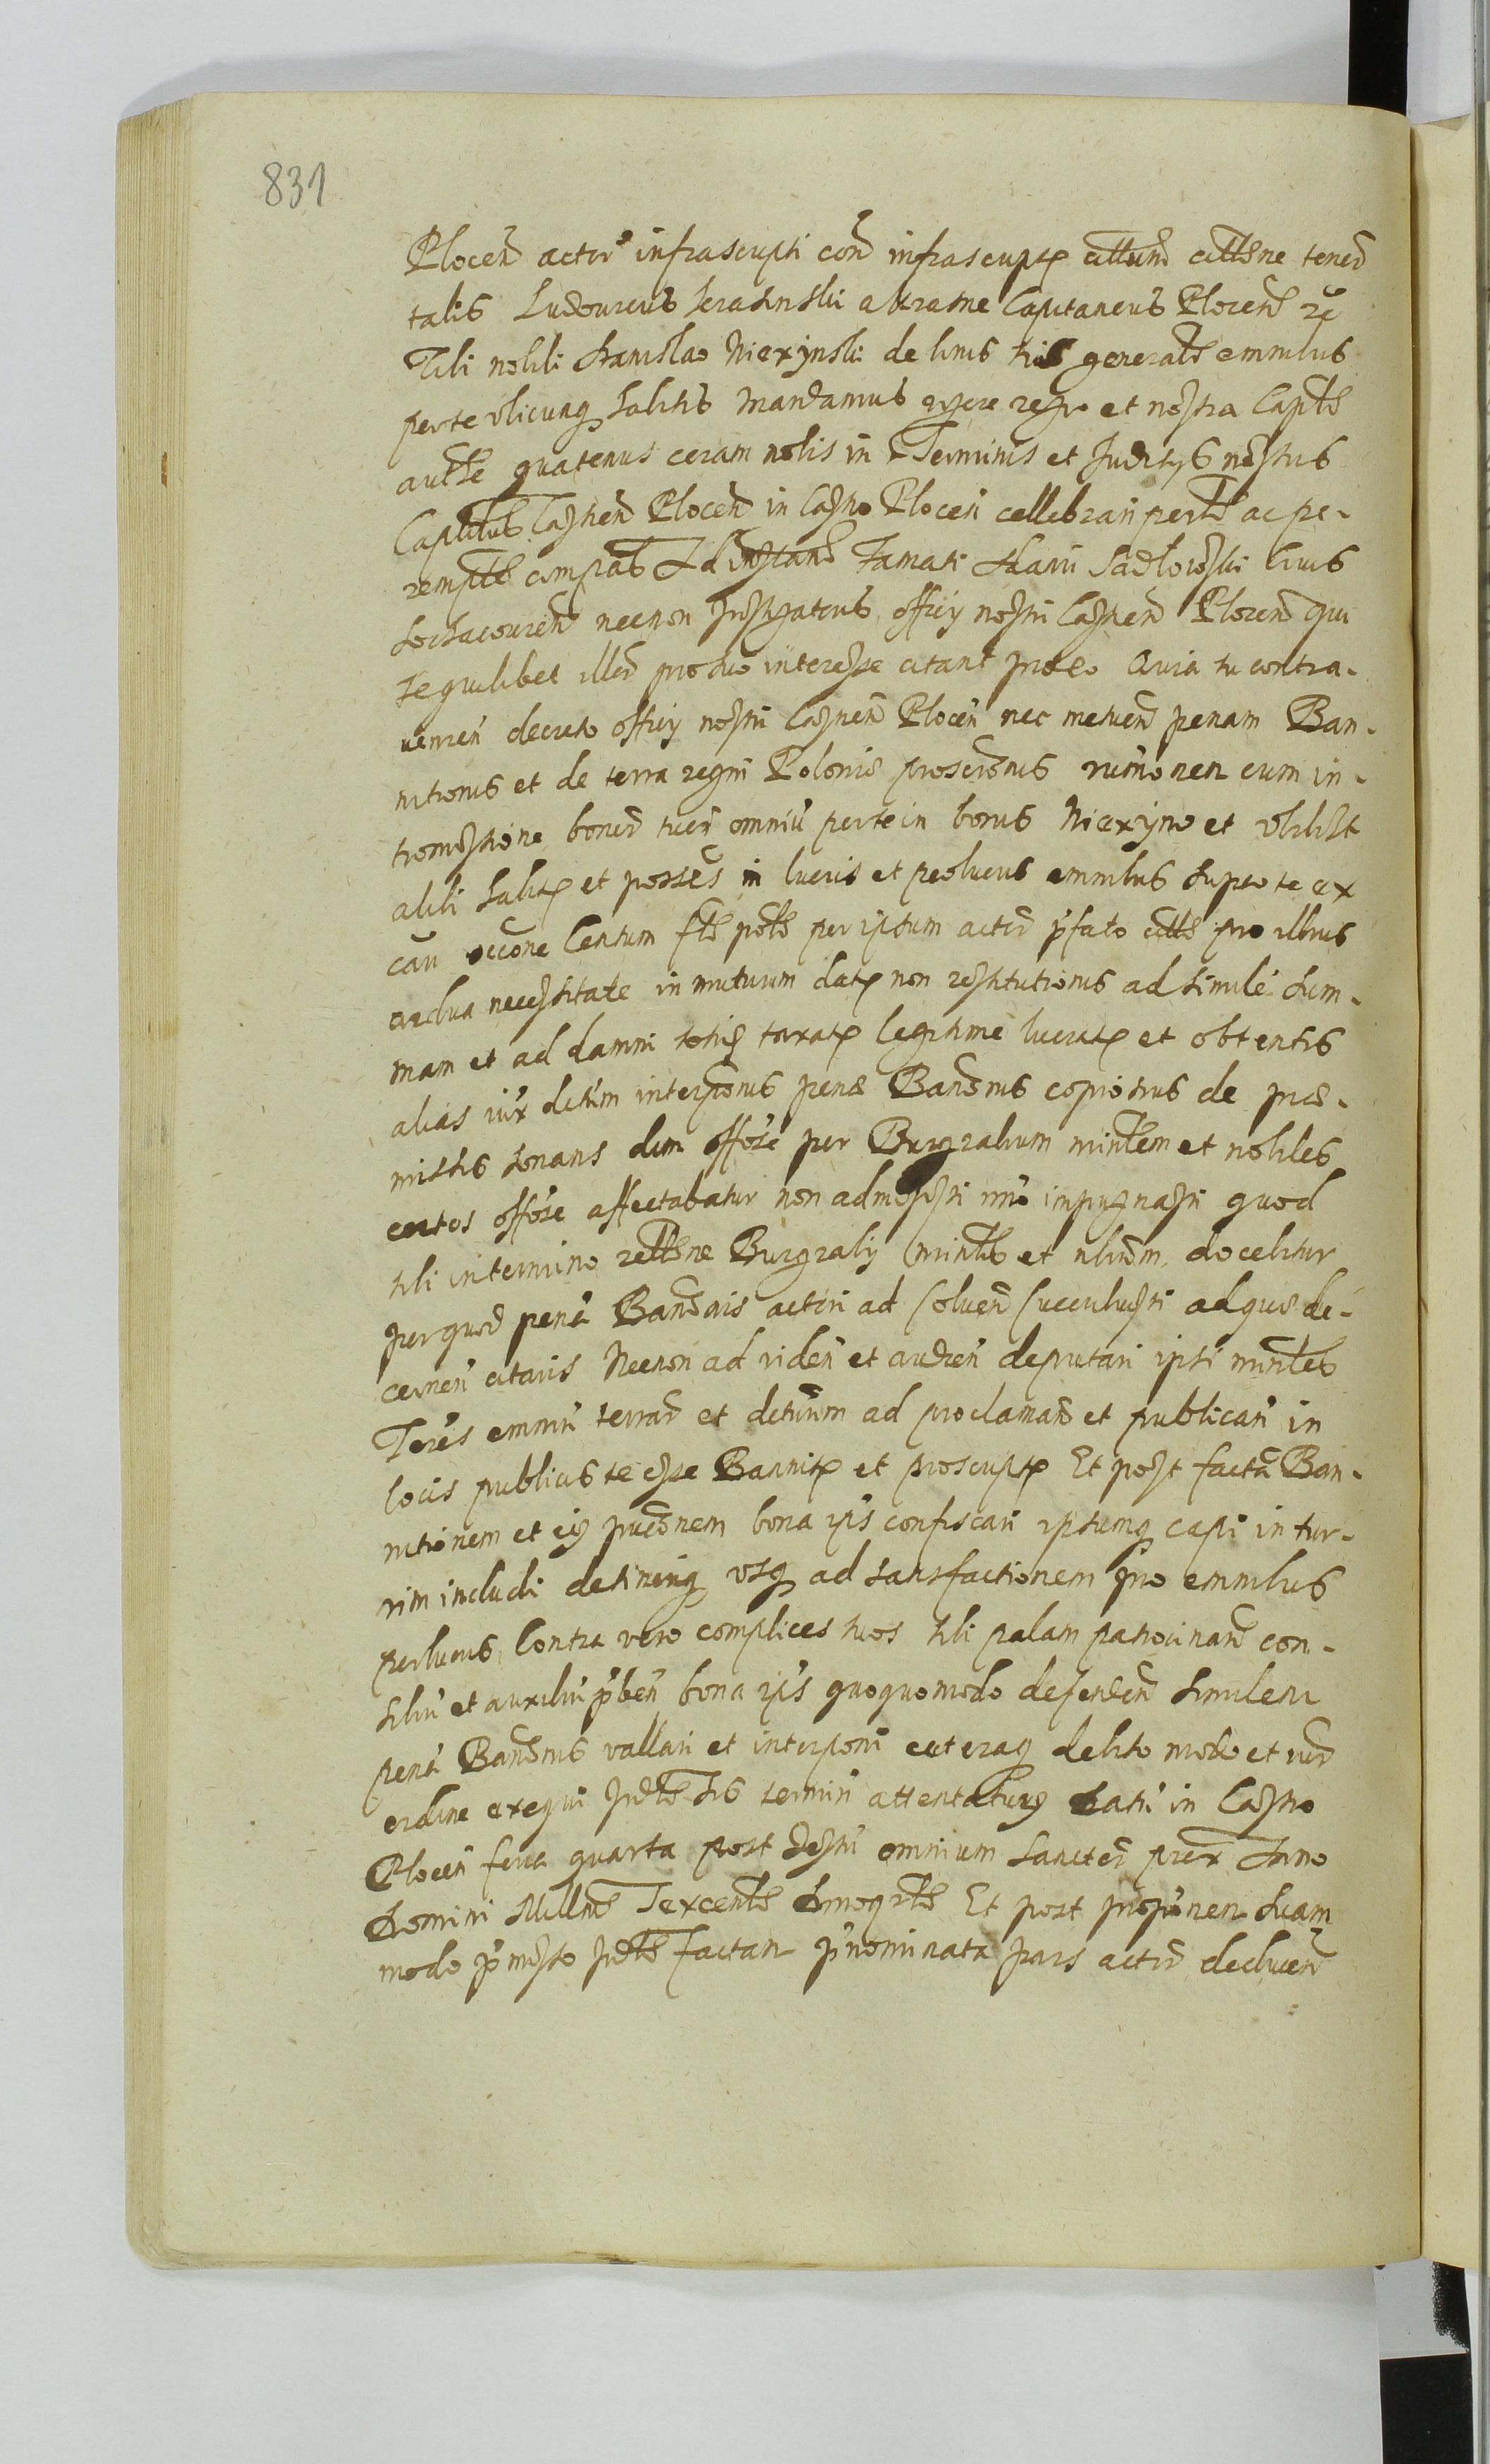 831
Plocen actor infrascripti con infrascript cittum cittne tenor
talis Ludovicus Krasinski a Krasne Capitaneus Plocen
Tibi nobili Stanislao Niexynski de bonis tuis generalr omnibus
per te ubicunq habitis Mandamus regia et nostra Captli
autte quatenus coram nobis in Terminis et Juditys nostris
Captlibus Castren Plocen in Castro Plocen cellebrari pertte ac pe-
rempte compas Ad instan Famati Sadlowski Civis
Sochacovien necnon Instigatoris officy nostri Castren Plocen qui
te quilibet illor pro suo interesse citant proeo Quia tu contra-
venien decreto officy nostri Castren Plocen nec metuen penam Ban-
nitionis et de terra regni Polonie proscronis rumonen cum in-
tromissione bonor tuor omniu per te in bonis Niexyno et ubilibt
alibi habit et posses in lucris et perlucris omnibus supro te ex
can occone Centum flr polr per ipsum actor pfato citto pro illius
ardua necessitate in mutuum dat non restitutionis ad simile sum-
mam et ad damni totiq taxat legitime lucrat et obtentis
alias iux detum interponis pene Banonis copiosius de prae-
missis sonans dum offose per Burgrabium minlem et nobiles
certos offose affectabatur non admisisti imo impugnasti quod
tibi in termino rellone Burgraby minlis et nblium docebitur
per quod pena Bannis actori ad solven succubuisti ad quae de-
cernen citaris Necnon ad viden et audien deputari ipsi minleb
Teres omniu terrar et detuum ad proclaman et publican in
locis publicis te esse Bannit et proscript Et post facta Ban-
nitionem et eiq pucaonem bona ips confiscari ipsumq capi in tur-
rim includi detineriq usq ad satisfactionem pro omnibus
perlucris Contra vero complices tuos tibi palam patrocinan con-
siliu et auxiliu pben bona ips quoquomodo defenden similem
pena Banonis vallari et interponi caeteraq debito modo et iur
ordine exequi Judlr his termini attentaturq Dati in Castro
Plocen feria quarta post festu omnium Sanctor prox Anno
Domini Millmo Sexcento Et post proponem suam
modo pmisso Judlr factam pnominata pars actor deducen